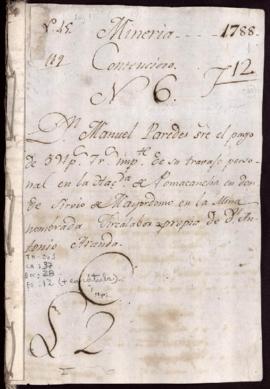 L. 15 Mineria 1788.
Contencioso. 12
N 6.
Dn. Manuel Paredes sre. el pago
de 311 p. 7 r. impte. de su travajo perso-
nal en la Hazda. de Pomacancha en don-
de Sirvio de Mayordomo en la Mina
nombrada propia de Dn. An-
tonio Aranda.
37
28
12 (+ carátula)
L 2